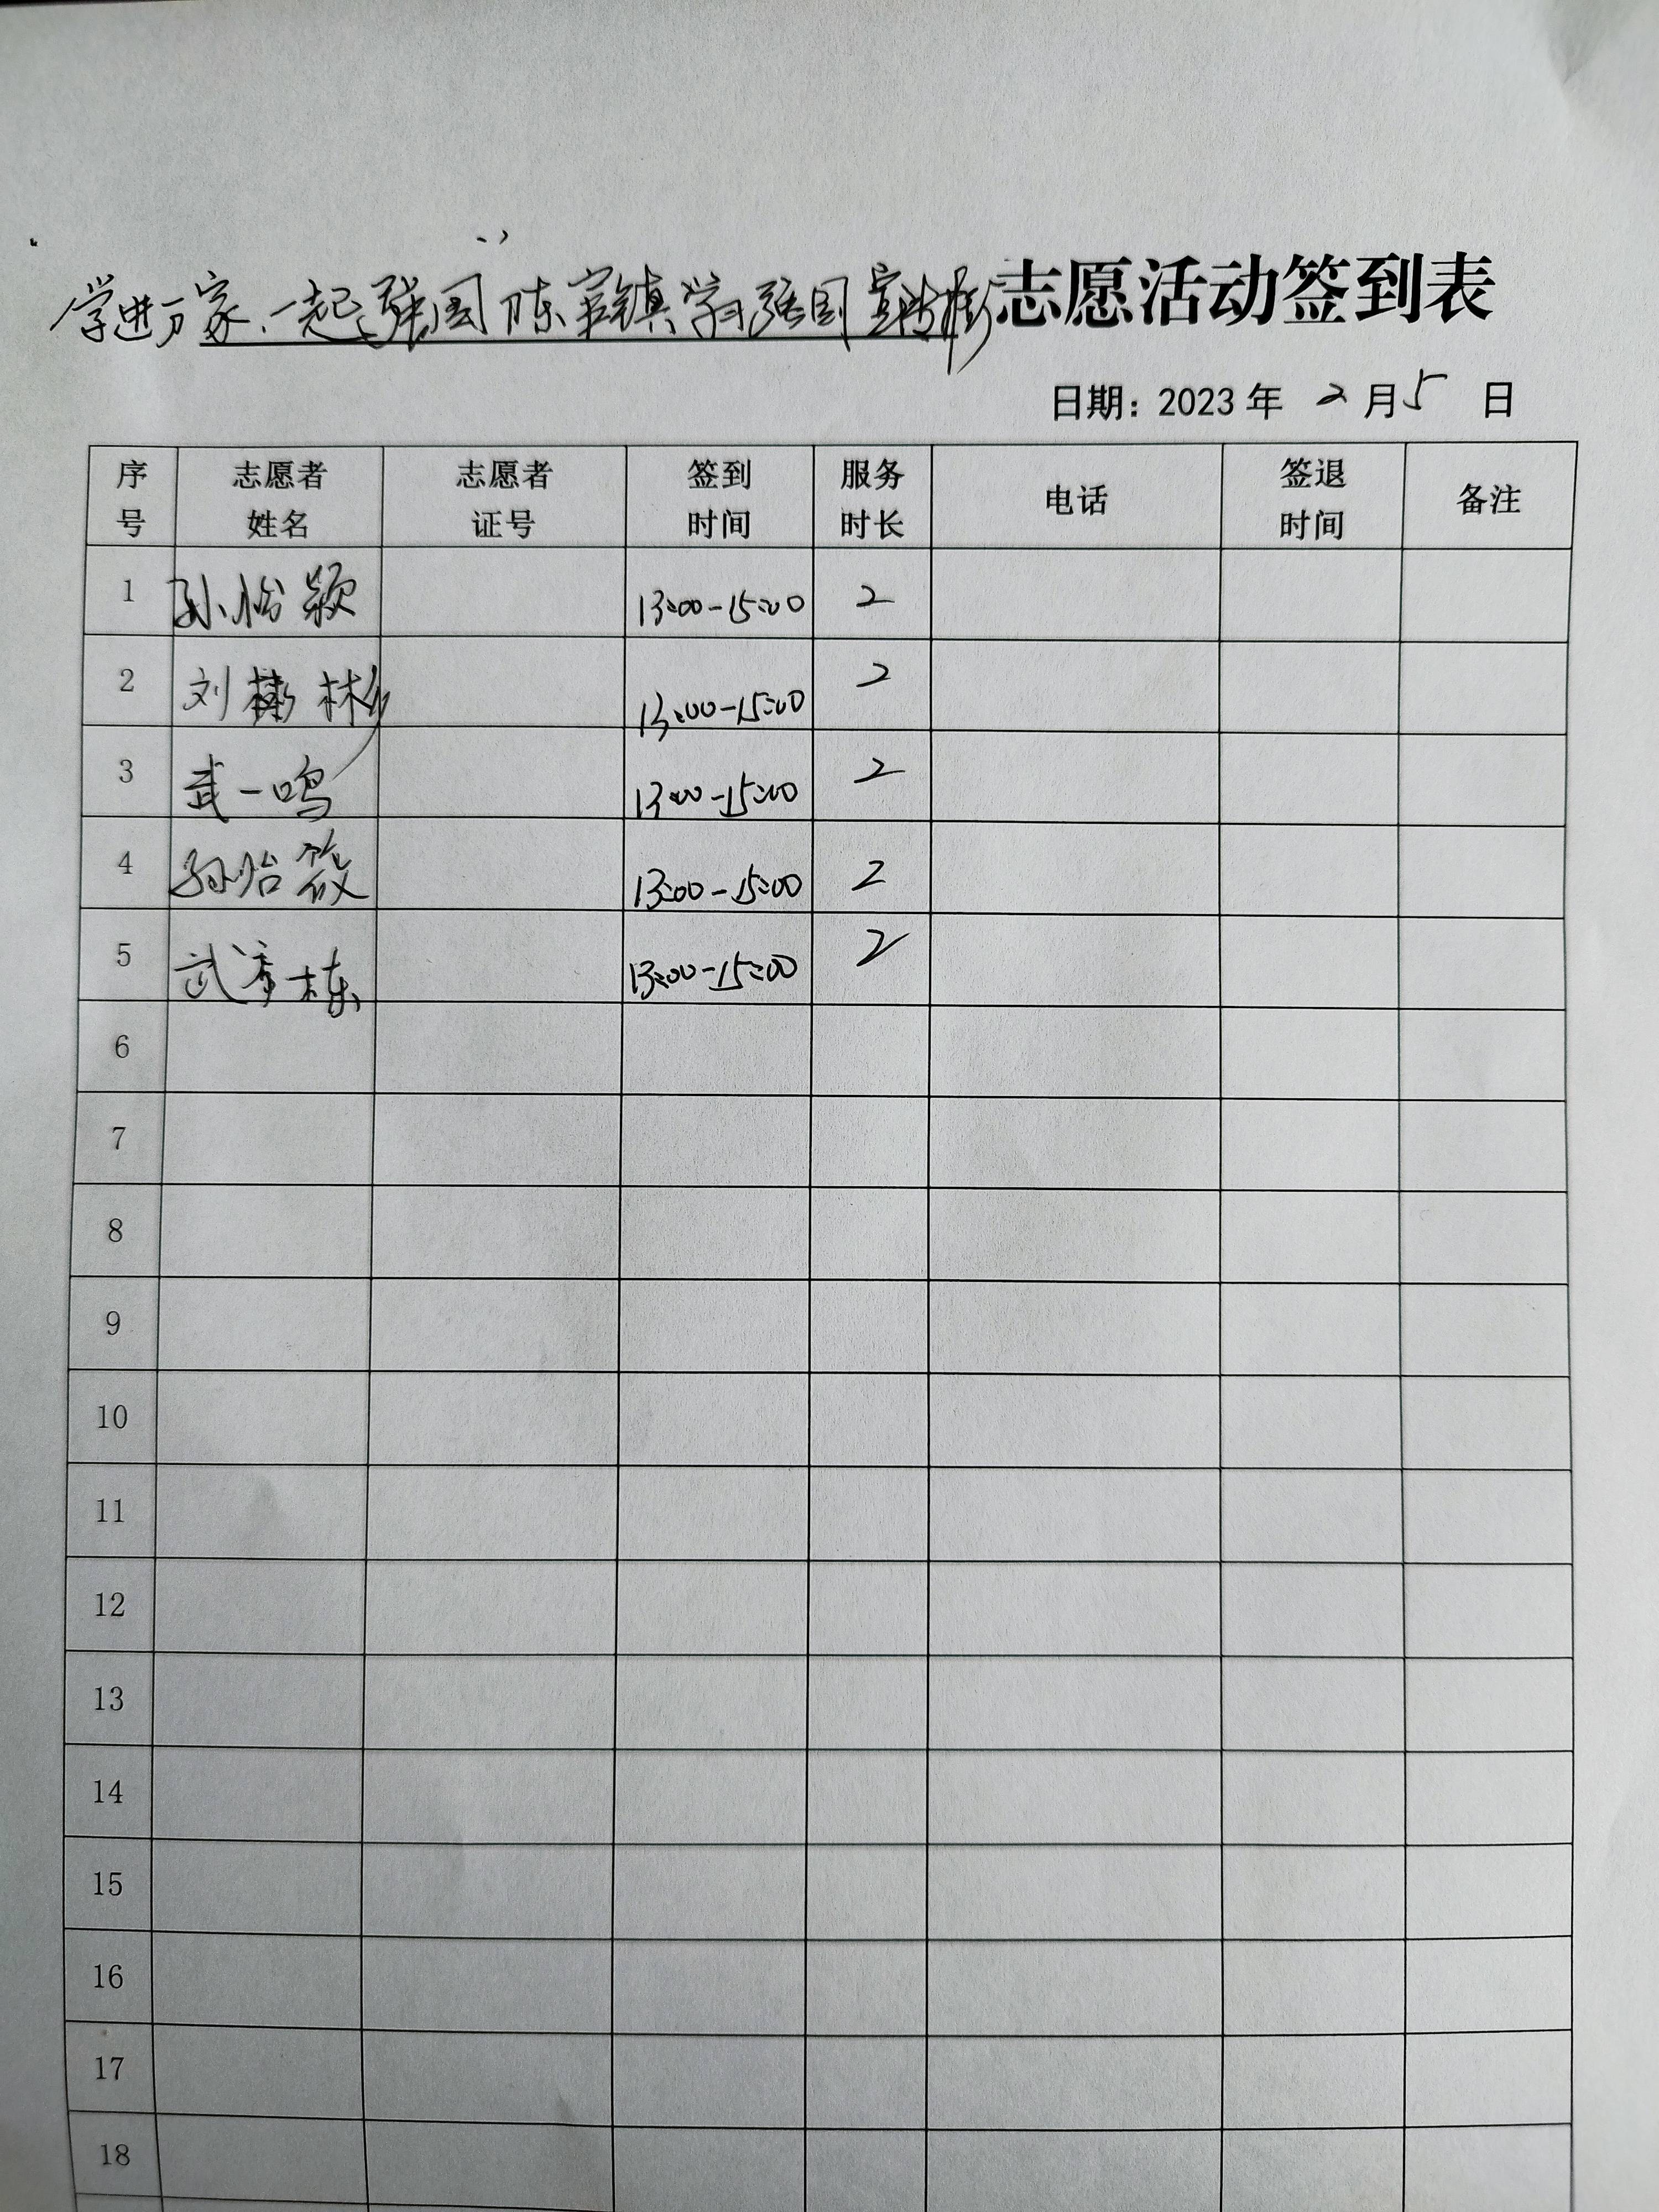 学进万家、一起强国 陈官镇学习强国宣传志愿活动签到表
日期：2023年 2月5日
序号 志愿者姓名 志愿者证号 签到时间 服务时长 电话 签退时间 备注
1 孙怡颖 13:00-15:00 2
2 刘 彬 13:00-15:00 2
3 武一鸣 13:00-15:00 2
4 孙怡筱 13:00-15:00 2
5 武 栋 13:00-15:00 2
6
7
8
9
10
11
12
13
14
15
16
17
18